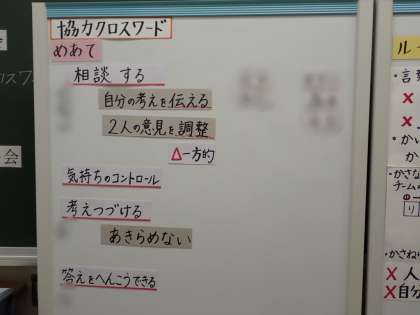 協力クロスワード
めあて
相談する
自分の考えを伝える
2人の意見を調整
△一方的
気持ちのコントロール
考えつづける
あきらめない
答えをへんこうできる
会
ル
・言葉
×
×
・かい
か
・かさな
チーム
り
・かさね
×人
×自分